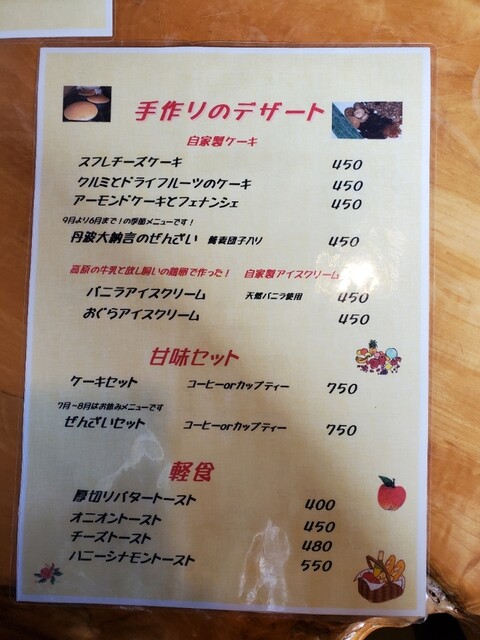 手作りのデザート
自家製ケーキ
スフレチーズケーキ 450
クルミとドライフルーツのケーキ 450
アーモンドケーキとフェナンシェ 450
9月より6月まで!の季節メニューです!
丹波大納言のぜんざい 蕎麦団子入り 450
高原の牛乳と放し飼いの鶏卵で作った! 自家製アイスクリーム
バニラアイスクリーム 天然バニラ使用 450
おぐらアイスクリーム 450
甘味セット
ケーキセット コーヒーorカップティー 750
7月~8月はお休みメニューです
ぜんざいセット コーヒーorカップティー 750
軽食
厚切りバタートースト 400
オニオントースト 450
チーズトースト 480
ハニーシナモントースト 550